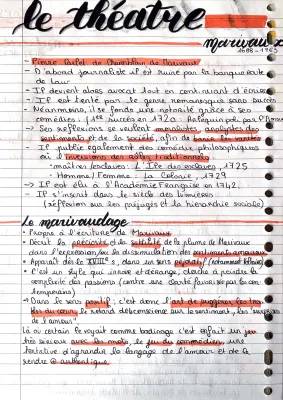 le théatre
marivaux
1688 - 1763
- Pierre Carlet de Chamblain de Marivaux
- D'abord journaliste il est ruiné par la banqueroute
de Law
- If devient alors avocat tout en continuant d'écrire
- If est tenté par le genre romanesque sans succès
- Néanmoins, il se fonde une notoriété grâce à ses
comédies : 1er succès en 1720 : Arlequin poli par l'Amour
- Ses réflexions se veulent moralistes, analystes des
sentiments et de la société, afin de
- If publie également des comédies philosophiques
où il inversion des rôles traditionnels
- maîtres/esclaves : L'Île des esclaves, 1725
- Homme/Femme : La Colonie, 1729
→ If est élu à l'Académie Française en 1742.
- If s'inscrit dans le siècle des lumières
(réflexion sur les préjugés et la hiérarchie sociale)
Le marivaudage
• Propre à l'écriture de Marivaux
• Décrit la préciosité et la subtilité de la plume de Marivaux
dans l'expression/ou la dissimulation des sentiments amoureux
• Apparaît dès le XVIIIe s, dans un sens péjoratif
• C'est un style qui innove et dérange, cherche à peindre la
complexité des passions (contre une clarté favorisée par les con-
temporains)
→ Dans le sens positif, c'est donc l'art de suggérer les trou-
bles du cœur, le retard de conscience sur le sentiment, les surprises
de l'amour"
Là où certains le voyait comme badinage c'est enfait un jeu
très sérieux avec les mots, le jeu du comédien, une
tentative d'agrandir le langage de l'amour et de le
rendre authentique.